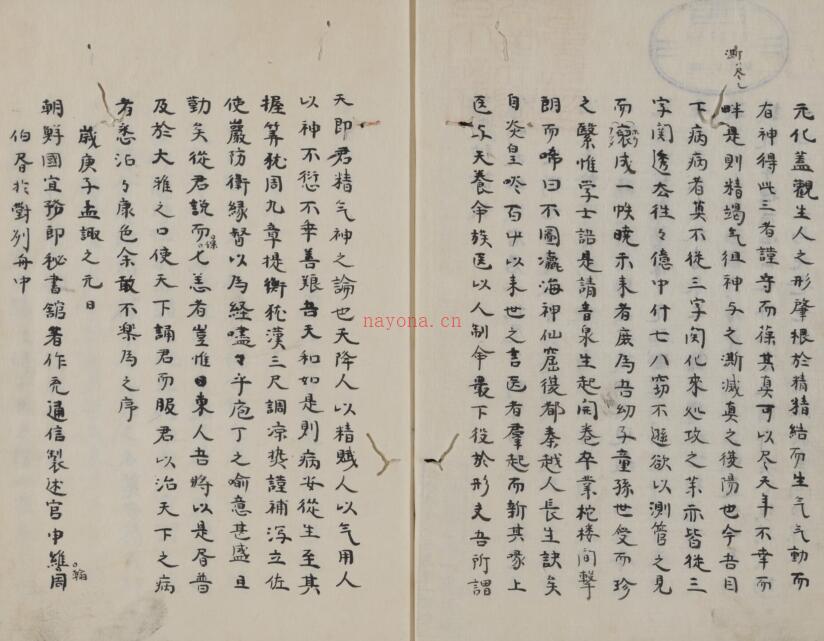 澌尽
元化蓋觀生人之形肇根於精精結而生气气動而
有神得此三者謹守而葆其真可以尽天年不幸而
畔是則精竭气徂神与之澌滅真之後陽也今吾目
下病病者莫不從三字関化來処攻之茉亦皆従三
字関透太往々億中什七八窃不遜欲以測管之見
而裒成一帙暁示来者庶為吾幼子童孫世受而珍
之繄惟学士語是請音泉生起開卷卒業柁楼间擊
朗而唏曰不圖瀛海神仙窟後都秦越人長生訣矣
自炎皇嚌百艸以来世之言医者羣起而新其喙上
医与天養命族医以人制命最下役於形夫吾所謂
天即君精气神之論也天降人以精賊人以气用人
以神不愆不幸善退吾天和如是則病安從生至其
握算犹周九章提衡犹漢三尺調凉热謹補泻立佐
使嚴防衛緣督以為経嘻々乎庖丁之喻意甚盛且
勤矣從君說而七恙者豈惟日東人吾將以是唇普
及於大雅之口使天下誦君而服君以治天下之病
者悉治々康色余敢不樂為之序
歳庚子孟諏之元日
朝鮮國宣務郎秘書舘著作充通信製述官申維周
翰
伯唇於對列舟中
nayona.cn